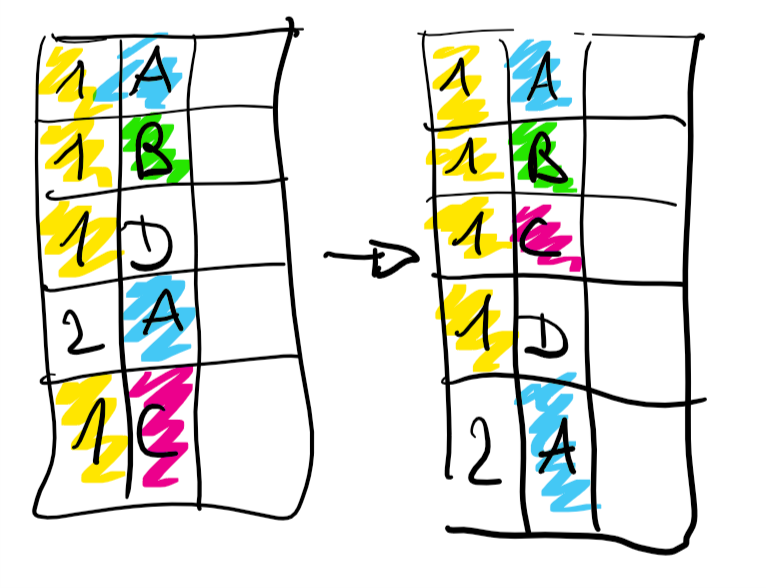 1 A
1 B
1 D
2 A
1 C
1 A
1 B
1 C
1 D
2 A